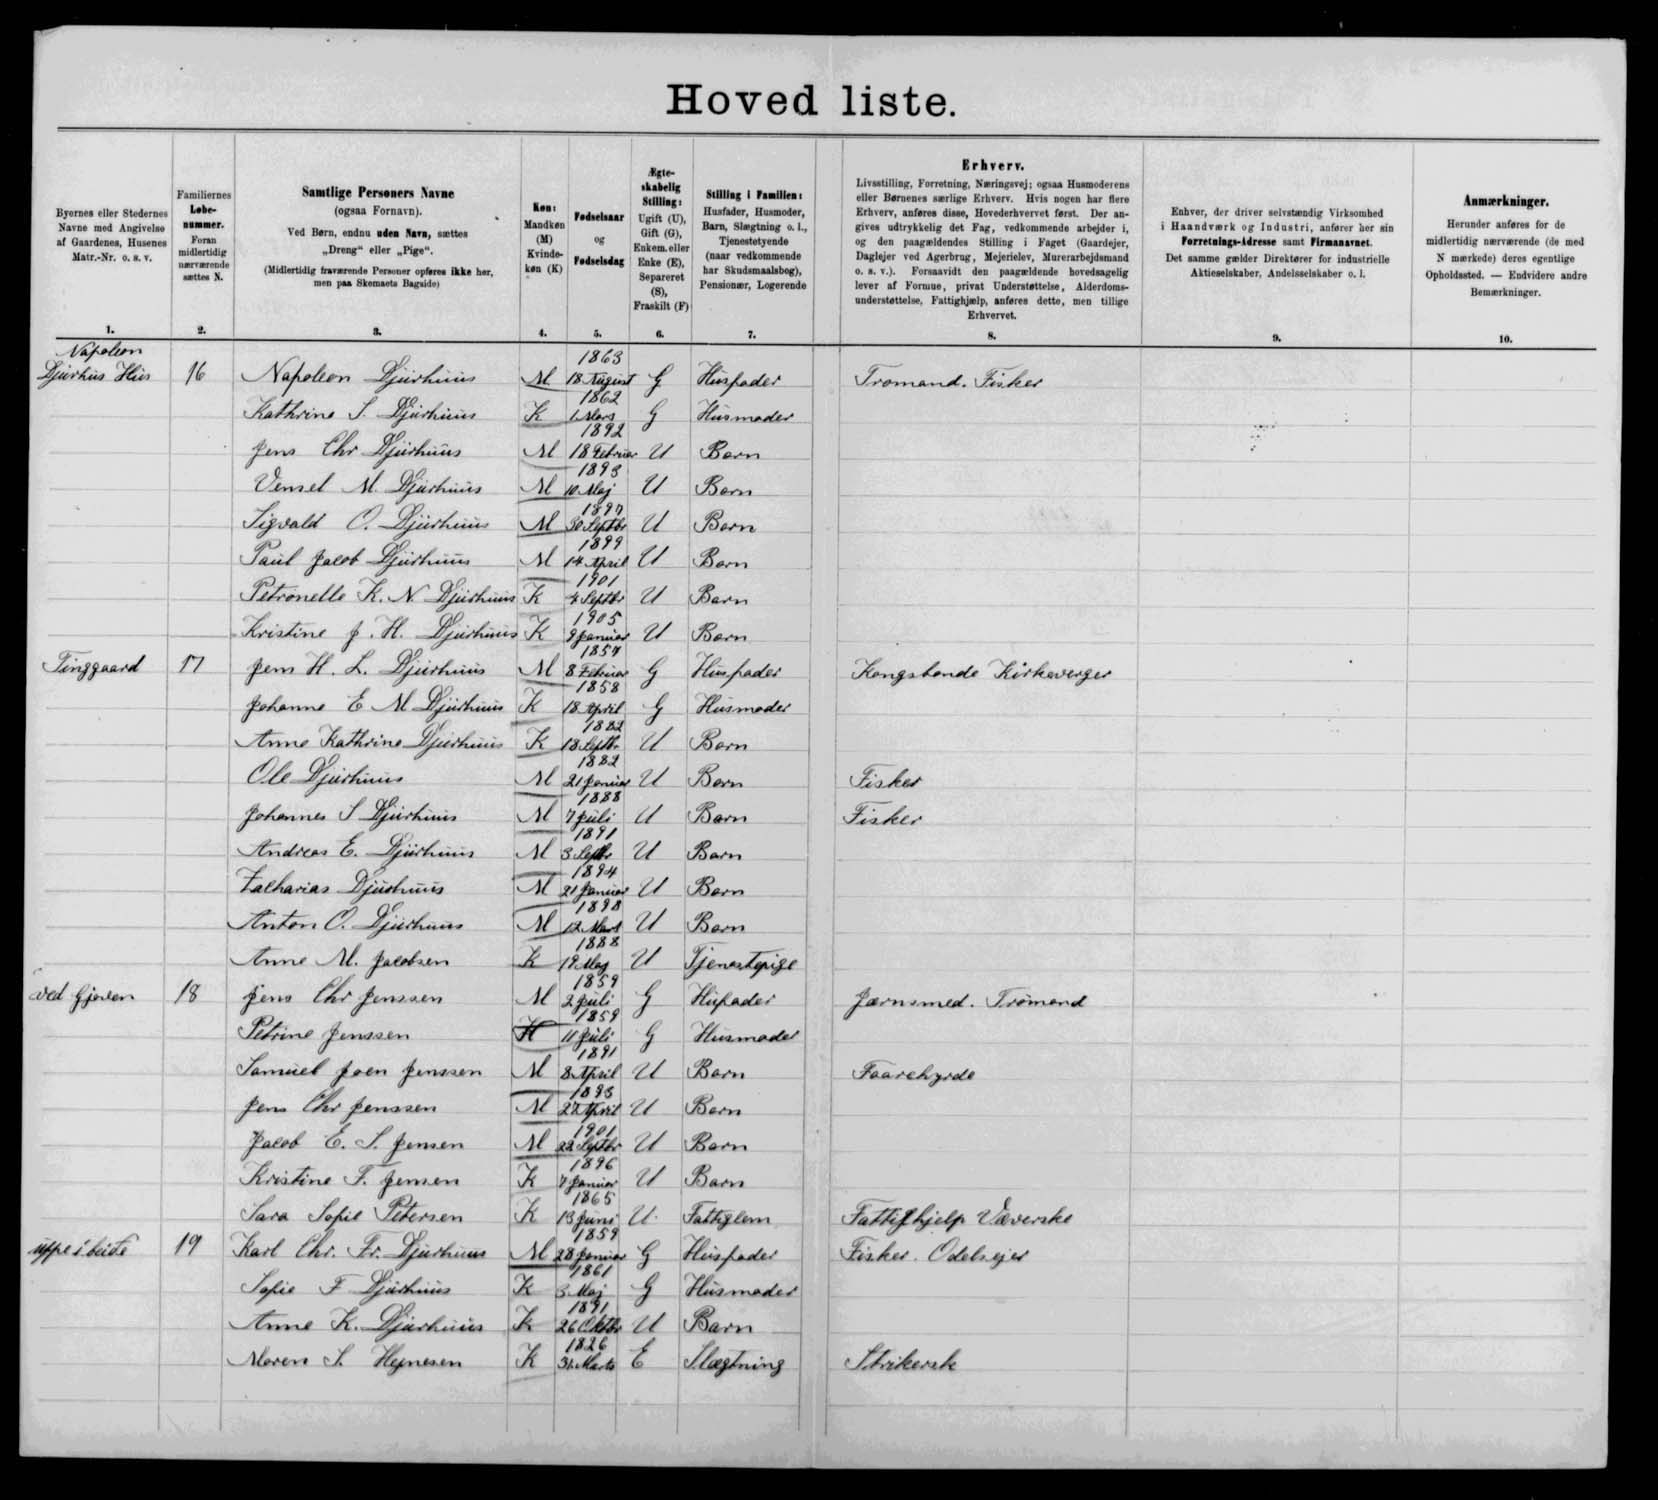 Hoved liste.
Byernes eller Stedernes Navne med Angivelse af Gaardenes, Husenes Matr.-Nr. o. s. v.
Familiernes Løbenummer. Foran midlertidig nærværende sættes N.
Samtlige Personers Navne (ogsaa Fornavn). Ved Børn, endnu uden Navn, sættes „Dreng" eller „Pige". (Midlertidig fraværende Personer opføres ikke her, men paa Skemaets Bagside)
Køn: Mandkøn (M) Kvindekøn (K)
Fødselsaar og Fødselsdag
Ægteskabelig Stilling: Ugift (U), Gift (G), Enkem. eller Enke (E), Separeret (S), Fraskilt (F)
Stilling i Familien: Husfader, Husmoder, Barn, Slægtning o. l., Tjenestetyende (naar vedkommende har Skudsmaalsbog), Pensionær, Logerende
Erhverv. Livsstilling, Forretning, Næringsvej; ogsaa Husmoderens eller Børnenes særlige Erhverv. Hvis nogen har flere Erhverv, anføres disse, Hovederhvervet først. Der angives udtrykkelig det Fag, vedkommende arbejder i, og den paagældendes Stilling i Faget (Gaardejer, Daglejer ved Agerbrug, Mejerielev, Murerarbejdsmand o. s. v.). Forsaavidt den paagældende hovedsagelig lever af Formue, privat Understøttelse, Alderdomsunderstøttelse, Fattighjælp, anføres dette, men tillige Erhvervet.
Enhver, der driver selvstændig Virksomhed i Haandværk og Industri, anfører her sin Forretnings-Adresse samt Firmanavnet. Det samme gælder Direktører for industrielle Aktieselskaber, Andelsselskaber o. l.
Anmærkninger. Herunder anføres for de midlertidig nærværende (de med N mærkede) deres egentlige Opholdssted. — Endvidere andre Bemærkninger.
1. 2. 3. 4. 5. 6. 7. 8. 9. 10.
Napoleon Djurhus Hus 16 Napoleon Djurhuus M 1863 18 August G Husfader Tromand. Fisker
Kathrine S. Djurhuus K 1862 1 Mars G Husmoder
Jens Chr Djurhuus M 1892 18 Februar U Barn
Vensel M. Djurhuus M 1893 10 Maj U Barn
Sigvald O. Djurhuus M 1897 30 Septbr U Barn
Paul Jacob Djurhuus M 1899 14 April U Barn
Petronelle K. N. Djurhuus K 1901 4 Septbr U Barn
Kristine J. H. Djurhuus K 1905 9 Januar U Barn
Tinggaard 17 Jens H. L. Djurhuus M 1857 8 Februar G Husfader Kongsbonde Kirkeverger
Johanne E M Djurhuus K 1858 18 April G Husmoder
Anne Kathrine Djurhuus K 1882 18 Septbr U Barn
Ole Djurhuus M 1882 21 Januar U Barn Fisker
Johannes S Djurhuus M 1888 7 Juli U Barn Fisker
Andreas E. Djurhuus M 1891 3 Septbr U Barn
Zacharias Djurhuus M 1894 21 Januar U Barn
Anton O. Djurhuus M 1898 12 Mart U Barn
Anne M. Jacobsen K 1888 19 Maj U Tjenestepige
ved Gjoven 18 Jens Chr Jenssen M 1859 2 Juli G Husfader Jærnsmed. Tromand
Petrine Jenssen K 1859 11 Juli G Husmoder
Samuel Joen Jenssen M 1891 8 April U Barn Faarehyrde
Jens Chr Jenssen M 1893 27 April U Barn
Jacob E. S. Jensen M 1901 22 Septbr U Barn
Kristine F. Jensen K 1896 7 Januar U Barn
Sara Sofie Petersen K 1865 13 Juni U. Fattiglem Fattighjelp Væverske
uppe i búte 19 Karl Chr. Fr. Djurhuus M 1859 28 Januar G Husfader Fisker. Odelsejer
Sofie F Djurhuus K 1861 3 Maj G Husmoder
Anne K. Djurhuus K 1891 26 Oktbr U Barn
Maren S. Hejnesen K 1826 31 Marts E Slægtning Strikersk